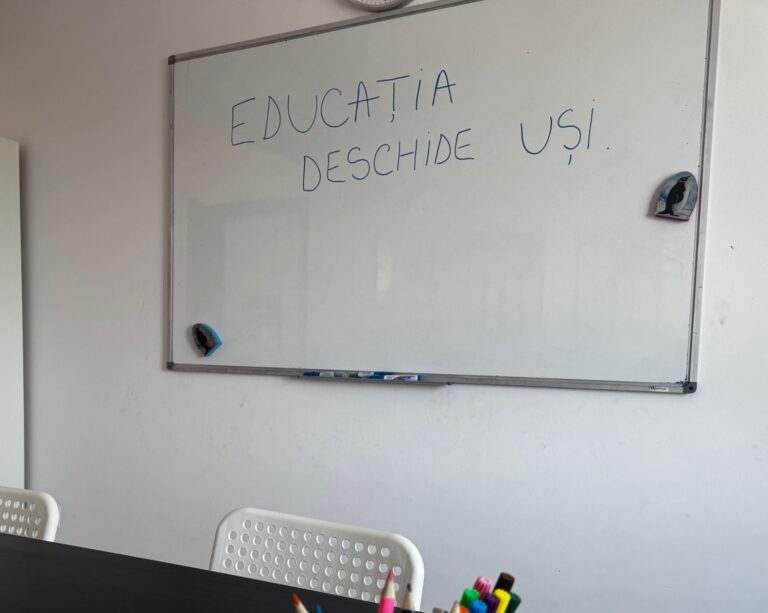 EDUCAȚIA
DESCHIDE UȘI.